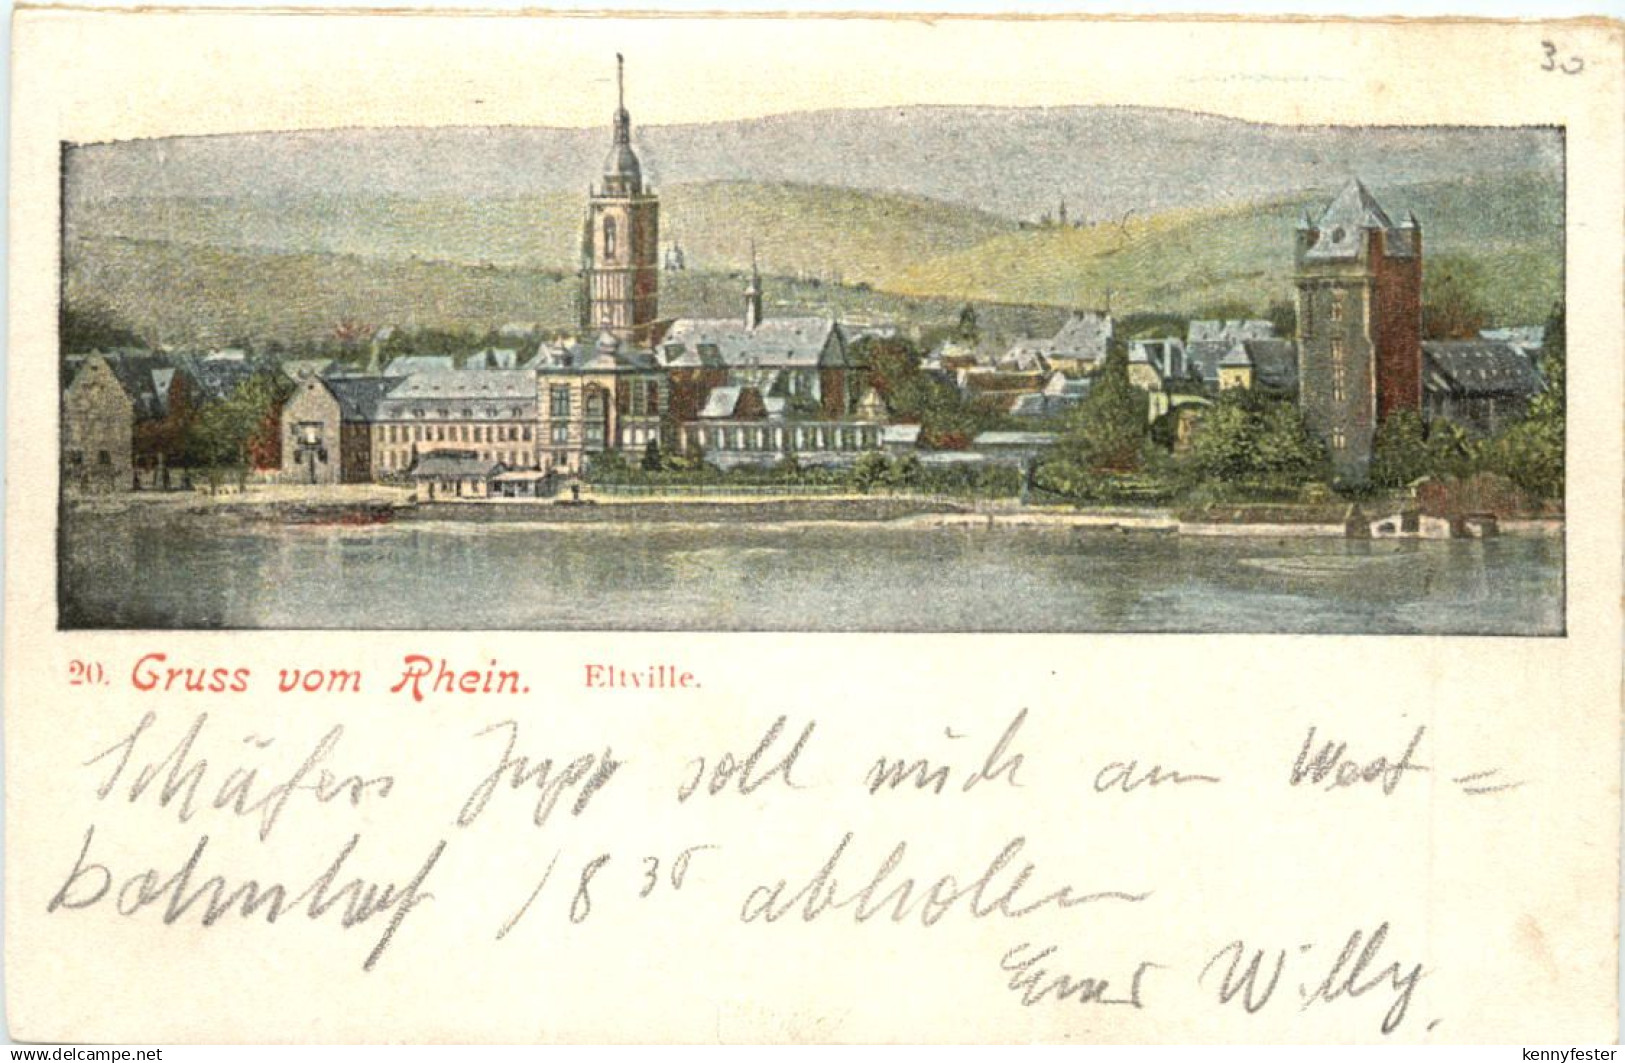 30
20. Gruss vom Rhein. Eltville.
Schäfers Jupp soll mich am West=
bahnhof 18 30 abholen
Euer Willy.
www.delcampe.net
kennyfester